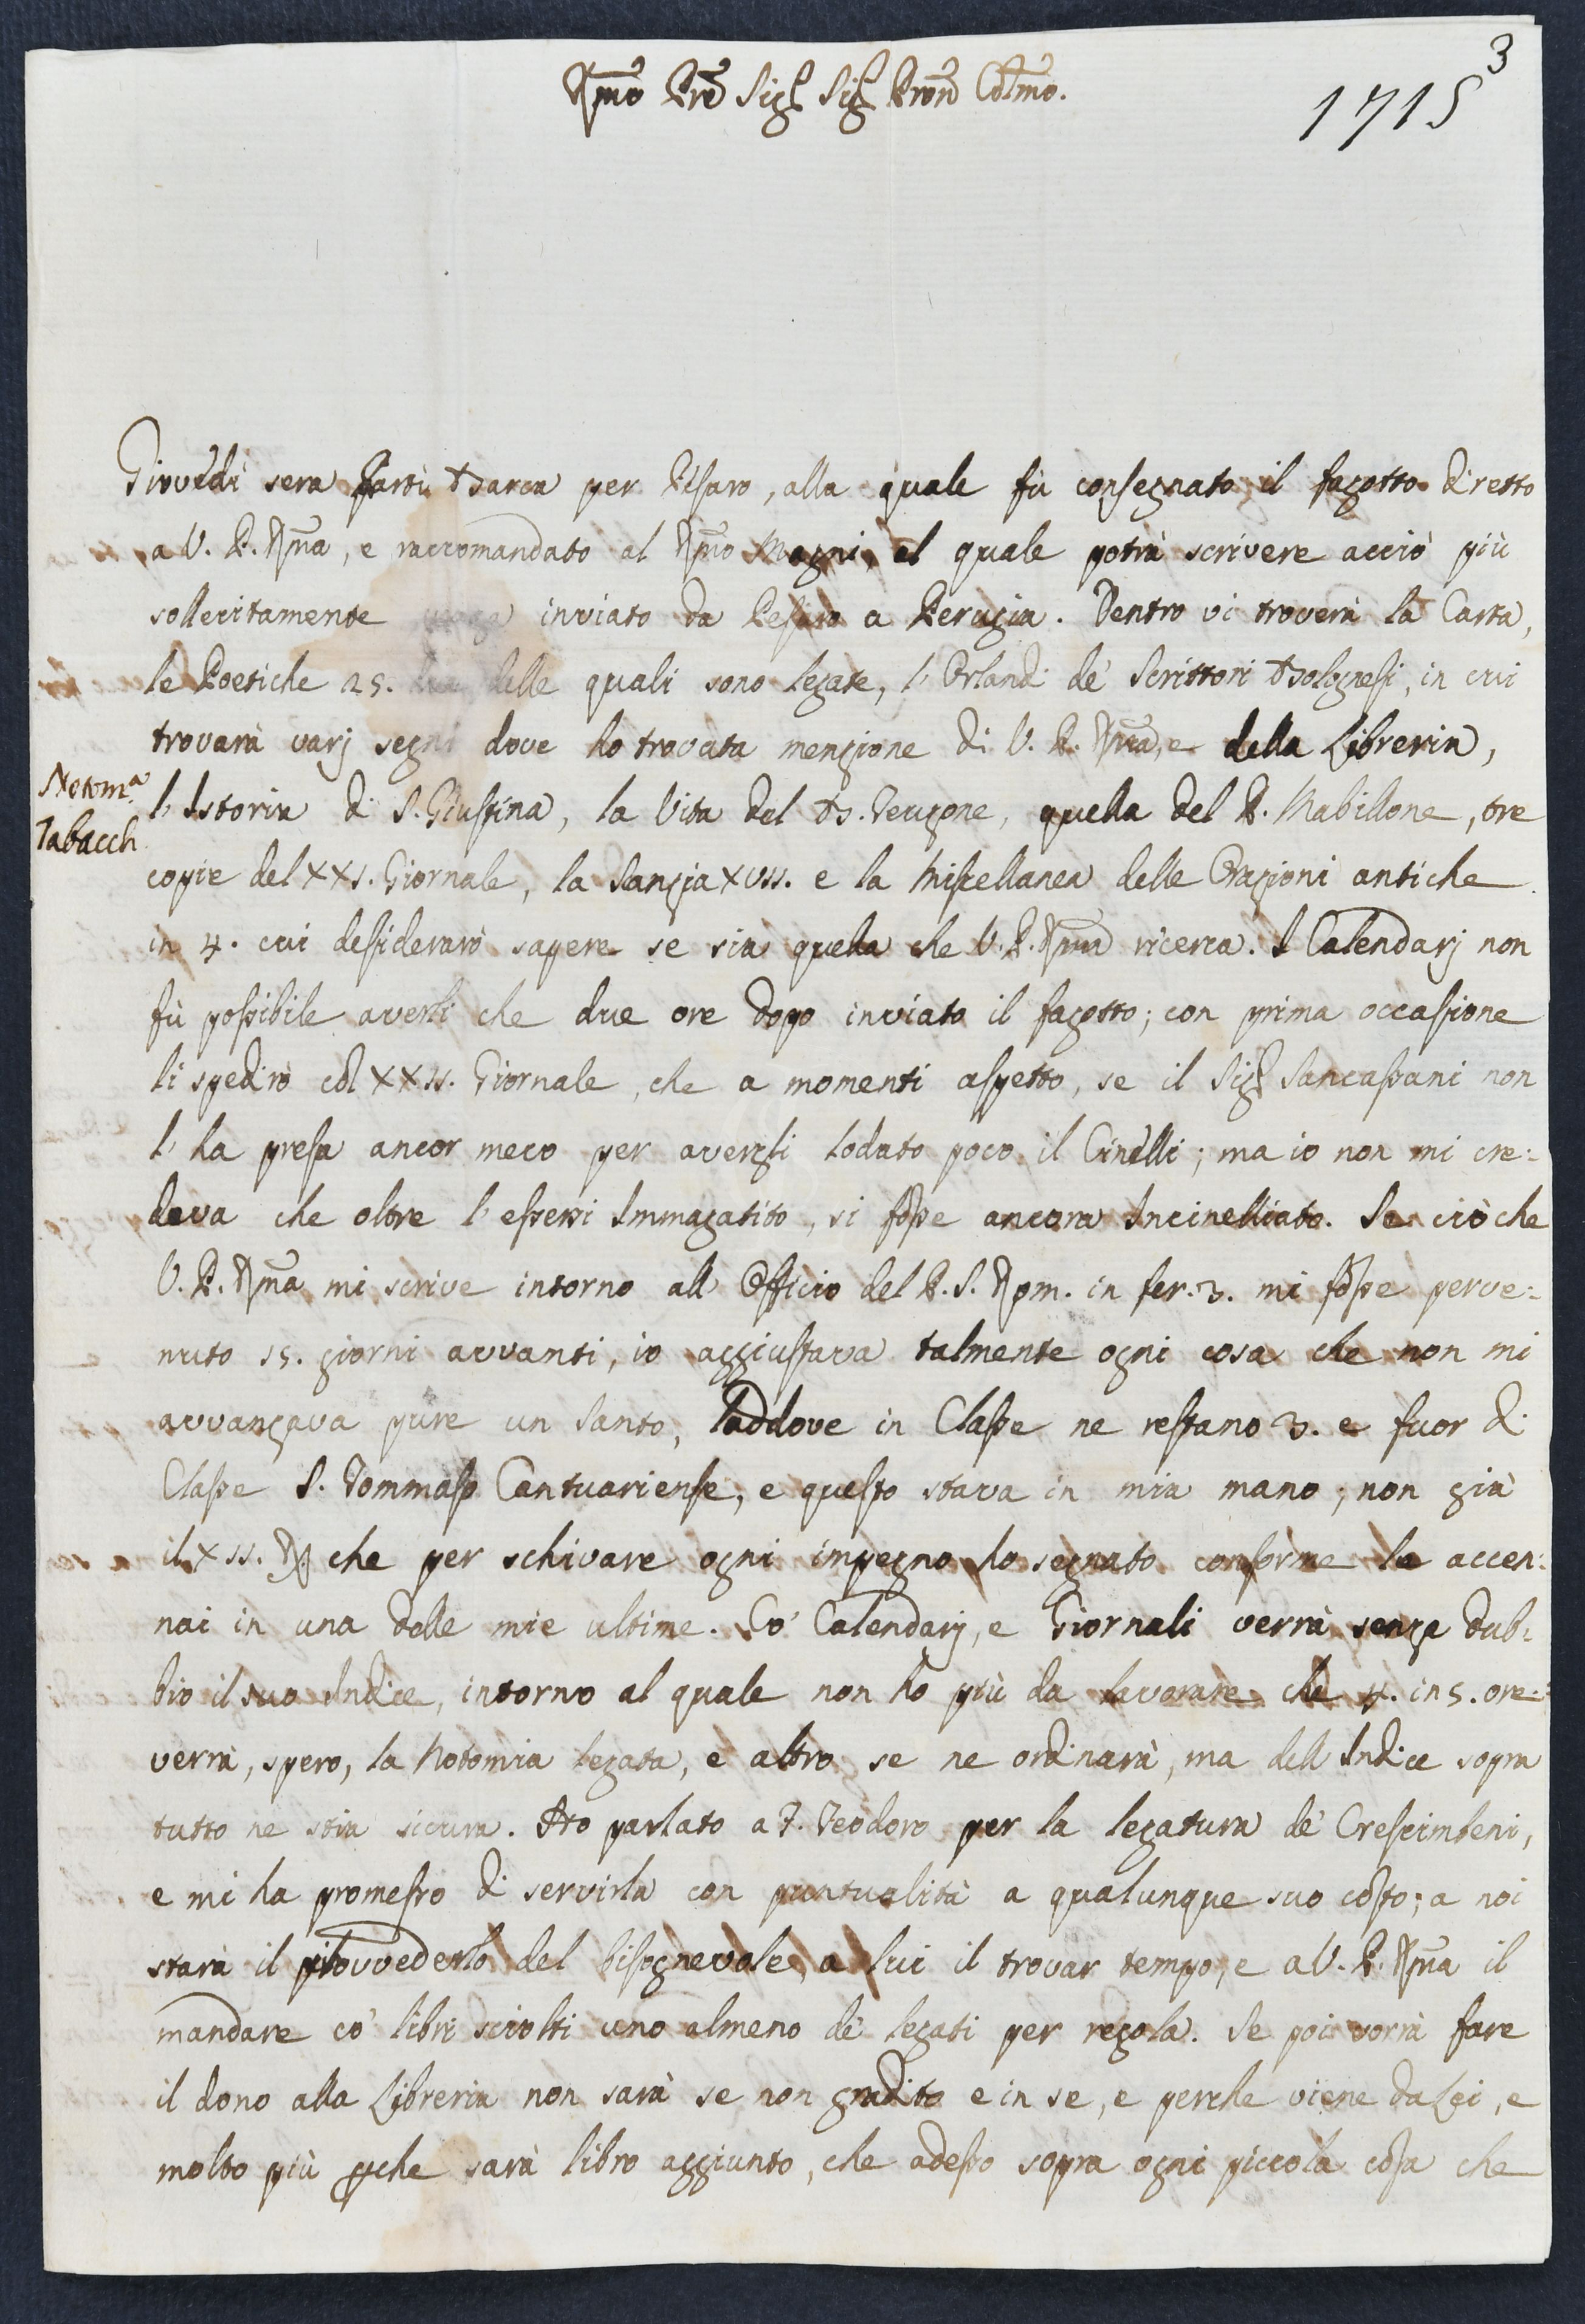 3
1715
Rmo Pre Sigr Sigr Pron Colmo.
Giovedì sera partì Barca per Pesaro, alla quale fù consegnato il fagotto diretto
a V. P. Rma, e raccomandato al Rmo Magni, al quale potrà scrivere acciò più
sollecitamente venga inviato da Pesaro a Perugia. Dentro vi troverà la Carta,
le Poetiche 25. delle quali sono legate, l'Orlandi de' Scrittori Bolognesi, in cui
trovarà varj segni dove ho trovata menzione di V. P. Rma, e della Libreria,
Notom.a
Tabacch.
l'Istoria di S. Giustina, la Vita del B. Teuzone, quella del P. Mabillone, tre
copie del XXI. Giornale, la Scanzia XVII. e la Miscellanea delle Orazioni antiche
in 4. cui desiderarò sapere se sia quella che V. P. Rma ricerca. I Calendarj non
fù possibile averli che due ore dopo inviato il fagotto; con prima occasione
li spedirò col XXII. Giornale, che a momenti aspetto, se il Sigr Sancassani non
l'ha presa ancor meco per avergli lodato poco il Cinelli; ma io non mi cre:
deva che oltre l'essersi Immagatito, si fosse ancora Incinelliato. Se ciò che
V. P. Rma mi scrive intorno all'Officio del P. S. Rom. in fer. 3. mi fosse perve:
nuto 15. giorni avvanti, io aggiustava talmente ogni cosa che non mi
avvanzava pure un Santo, laddove in Classe ne restano 3. e fuor di
Classe S. Tommaso Cantuariense, e questo stava in mia mano; non già
il XII. che per schivare ogni impegno ho segnato conforme le accen:
nai in una delle mie ultime. Co' Calendarj, e Giornali verrà senza dub:
bio il suo Indice, intorno al quale non ho più da lavorare che 4. in 5. ore:
verrà, spero, la Notomia legata, e altro se ne ordinarà, ma dell'Indice sopra
tutto ne stia sicura. Ho parlato a F. Teodoro per la legatura de' Crescimbeni,
e mi ha promesso di servirla con puntualità a qualunque suo costo; a noi
starà il provvederlo del bisognevole, a lui il trovar tempo, e a V. P. Rma il
mandare co' libri sciolti uno almeno de' legati per regola. Se poi vorrà fare
il dono alla Libreria non sarà se non gradito e in se, e perche viene da Lei, e
molto più pche sarà libro aggiunto, che adesso sopra ogni piccola cosa che